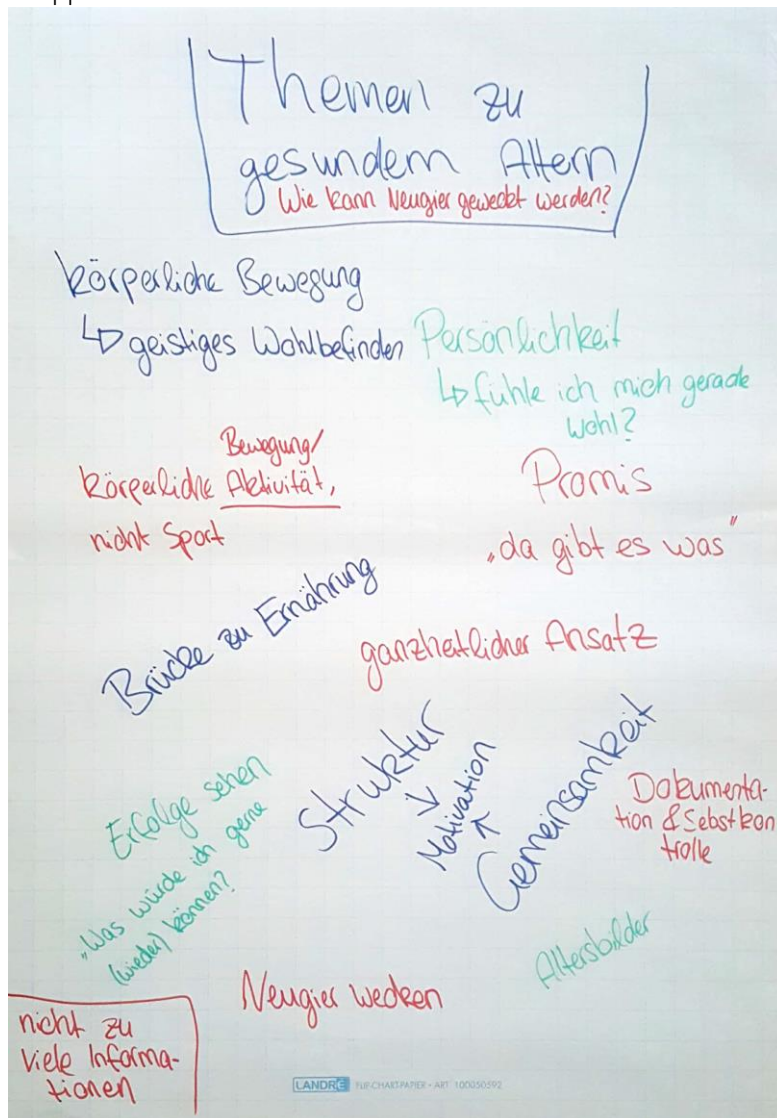 Themen zu
gesundem Altern
Wie kann Neugier geweckt werden?
körperliche Bewegung
↳ geistiges Wohlbefinden
Persönlichkeit
↳ fühle ich mich gerade
wohl?
Bewegung/
körperliche Aktivität,
nicht Sport
Promis
„da gibt es was"
Brücke zu Ernährung
ganzheitlicher Ansatz
Struktur
↓
Motivation
↑
Gemeinsamkeit
Erfolge sehen
„Was würde ich gerne
(wieder) können?
Dokumenta-
tion & Sebstkon
trolle
Altersbilder
Neugier wecken
nicht zu
viele Informa-
tionen
LANDRÉ FLIP-CHARTPAPIER • ART. 100050592